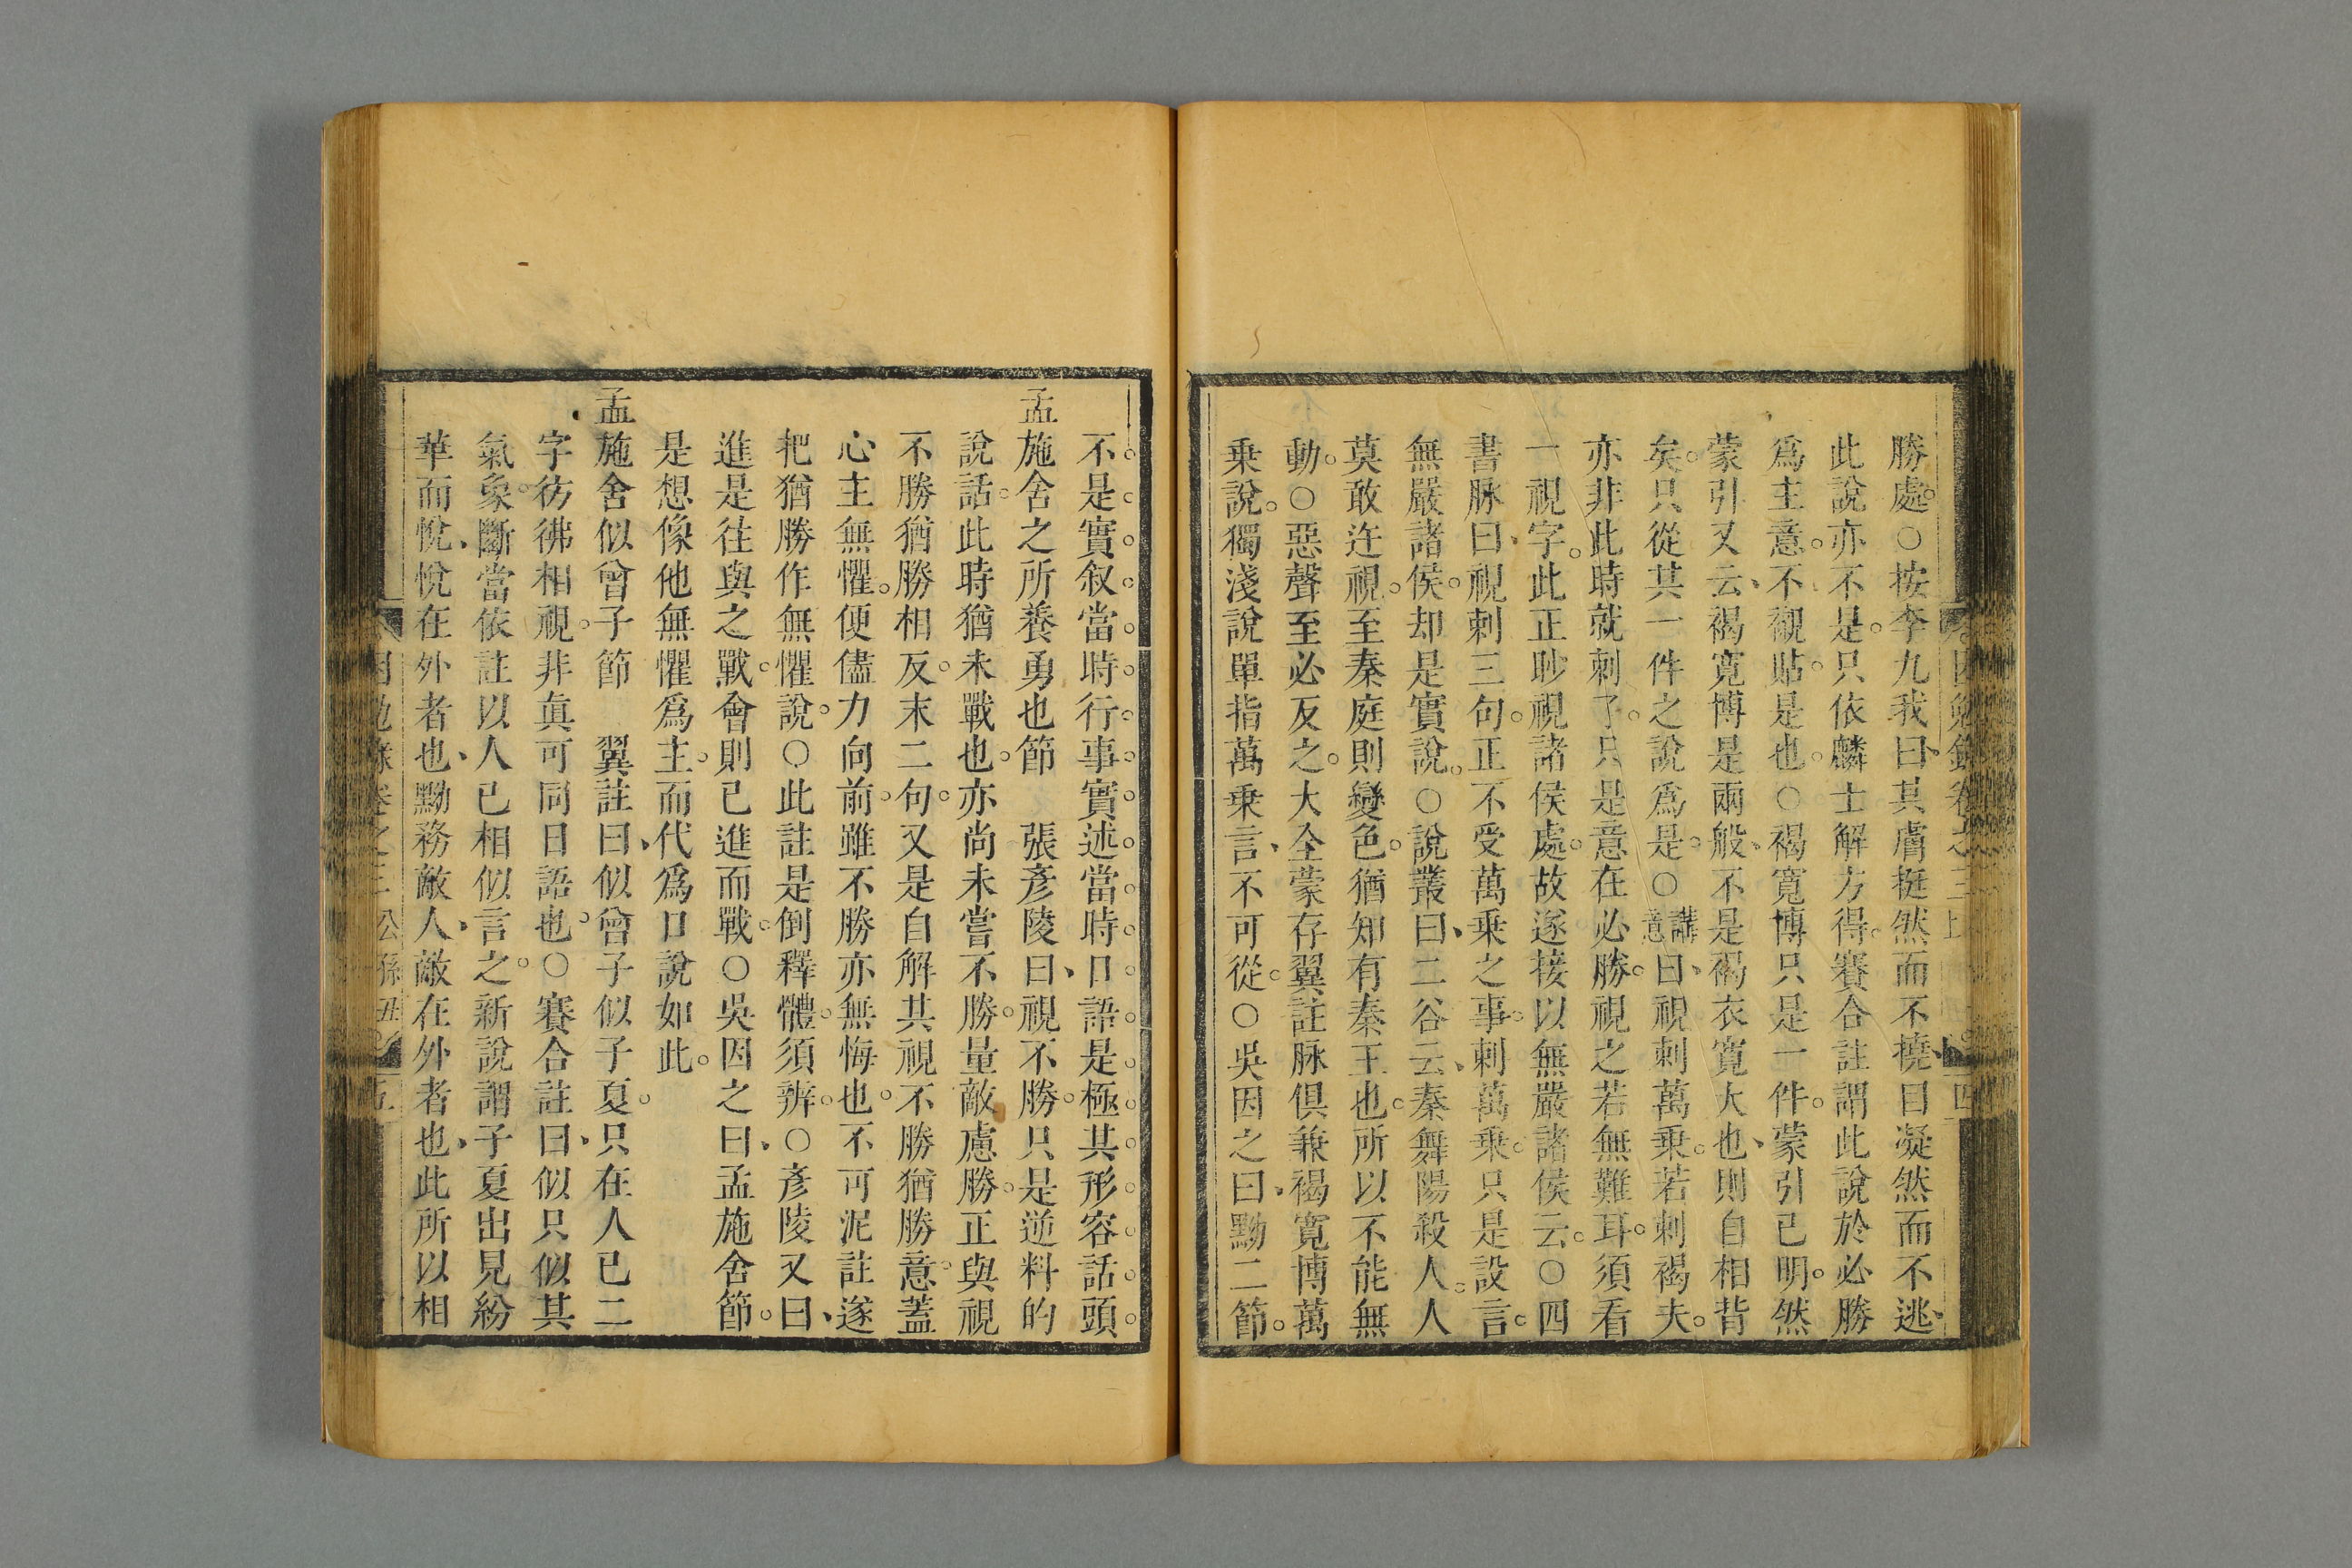 勝處。○按李九我曰、其膚挺然而不撓、目凝然而不逃、
此說亦不是。只依麟士解方得。賽合註謂此說於必勝
爲主意。不襯貼。是也。○褐寬博只是一件。蒙引已明。然
蒙引又云、褐寬博是兩般、不是褐衣寬大也、則自相背
矣。只從其一件之說爲是。○講意曰、視刺萬乗。若刺褐夫。
亦非此時就刺了。只是意在必勝。視之若無難耳。須看
一視字。此正眇視諸侯處。故遂接以無嚴諸侯云。○四
書脉曰、視刺三句。正不受萬乗之事。刺萬乗。只是設言。
無嚴諸侯。却是實說。○說叢曰、二谷云、秦舞陽殺人。人
莫敢迕視。至秦庭則變色。猶知有秦王也。所以不能無
動。○惡聲至必反之。大全蒙存翼註脉俱兼褐寛博萬
乗說。獨淺說單指萬乗言、不可從。○吳因之曰、黝二節。
不是實叙當時行事實述當時口語是極其形容話頭。
孟施舍之所養勇也節　張彥陵曰、視不勝。只是逆料的
說話。此時猶未戰也。亦尚未嘗不勝。量敵慮勝。正與視
不勝猶勝相反。末二句。又是自解其視不勝猶勝意。蓋
心主無懼。便儘力向前。雖不勝亦無悔也。不可泥註遂
把猶勝作無懼說。○此註是倒釋體。須辨。○彥陵又曰、
進是往與之戰。會則已進而戰。○吳因之曰、孟施舍節。
是想像他無懼爲主。而代爲口說如此。
孟施舍似曾子節　翼註曰、似曾子似子夏。只在人已二
字彷彿相視。非眞可同日語也。○賽合註曰、似只似其
氣象。斷當依註以人已相似言之。新說謂子夏出見紛
華而悅、悅在外者也、黝務敵人、敵在外者也、此所以相